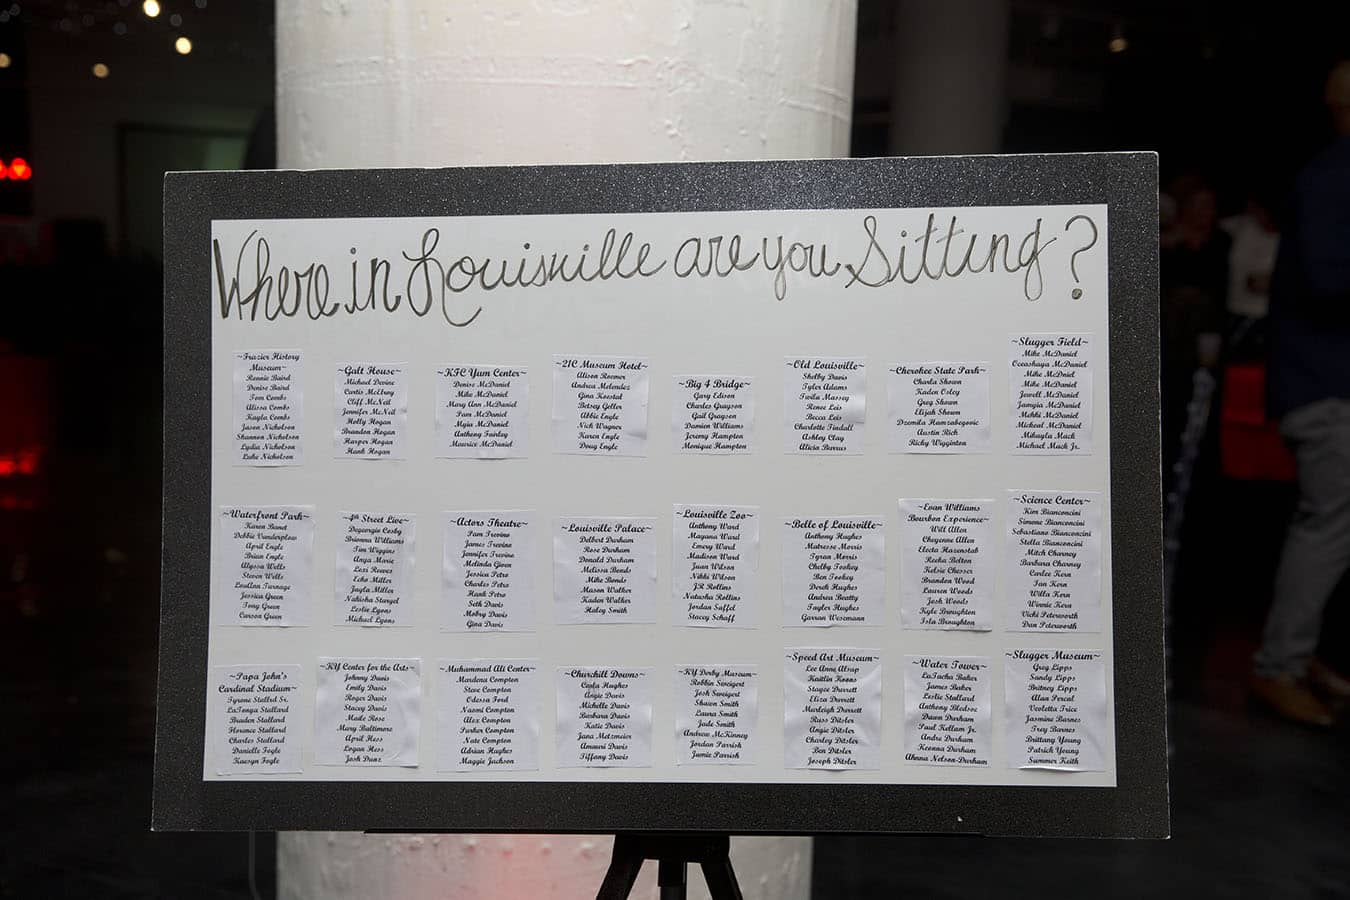 Where in Louisville are you Sitting?
~Frazier History
Museum~
Ronnie Baird
Denise Baird
Tom Combs
Alissa Combs
Kayla Combs
Jason Nicholson
Shannon Nicholson
Lydia Nicholson
Luke Nicholson
~Galt House~
Michael Devine
Curtis McElroy
Cliff McNeil
Jennifer McNeil
Holly Hogan
Brandon Hogan
Harper Hogan
Hank Hogan
~KFC Yum Center~
Denise McDaniel
Mike McDaniel
Mary Ann McDaniel
Pam McDaniel
Mgia McDaniel
Anthony Fairley
Maurice McDaniel
~21C Museum Hotel~
Alison Roemer
Andrea Melendez
Gina Koostal
Betsey Geller
Abbie Engle
Nick Wagner
Karen Engle
Doug Engle
~Big 4 Bridge~
Gary Edison
Charles Grayson
Gail Grayson
Damien Williams
Jeremy Hampton
Monique Hampton
~Old Louisville~
Shelby Davis
Tyler Adams
Twila Massey
Renee Leis
Becca Leis
Charlotte Tindall
Ashley Clay
Alicia Burrus
~Cherokee State Park~
Charla Shown
Kaden Osley
Greg Shown
Elijah Shown
Dzemila Hamzabegovic
Austin Rich
Ricky Wigginton
~Slugger Field~
Mike McDaniel
Occoshaya McDaniel
Mike McDniel
Mike McDaniel
Jewell McDaniel
Jamyia McDaniel
Mekhi McDaniel
Micheal McDaniel
Mikayla Mack
Michael Mack Jr.
~Waterfront Park~
Karen Banet
Debbie Vanderplow
April Engle
Brian Engle
Alyssa Wells
Steven Wells
LouAnn Turnage
Jessica Green
Tony Green
Carson Green
~4th Street Live~
Degeorgio Cosby
Brianna Williams
Tim Wiggins
Anya Marie
Lexi Reeves
Echo Miller
Jayla Miller
Nakisha Stangel
Leslie Lyons
Michael Lyons
~Actors Theatre~
Pam Trevino
James Trevino
Jennifer Trevino
Melinda Given
Jessica Petro
Charles Petro
Hank Petro
Seth Davis
Mobry Davis
Gina Davis
~Louisville Palace~
Delbert Durham
Rose Durham
Donald Durham
Melissa Bonds
Mike Bonds
Mason Walker
Kaden Walker
Haley Smith
~Louisville Zoo~
Anthony Ward
Mayana Ward
Emery Ward
Madison Ward
Juan Wilson
Nikki Wilson
JR Rollins
Natasha Rollins
Jordan Saffel
Stacey Schaff
~Belle of Louisville~
Anthony Hughes
Matresse Morris
Tyran Morris
Chelby Tookey
Ben Tookey
Derek Hughes
Andrea Beatty
Tayler Hughes
Garran Wesemann
~Evan Williams
Bourbon Experience~
Will Allen
Cheyenne Allen
Electa Hazenstab
Reeka Bolton
Kelsie Chesser
Brandon Wood
Lauren Woods
Josh Woods
Kyle Broughton
Isla Broughton
~Science Center~
Kim Bianconcini
Simone Bianconcini
Sebastiano Bianconcini
Stella Bianconcini
Mitch Charney
Barbara Charney
Carlee Kern
Ian Kern
Willa Kern
Winnie Kern
Vicki Peterworth
Dan Peterworth
~Papa John's
Cardinal Stadium~
Tyrone Stallrd Sr.
LaTonya Stallard
Braden Stallard
Florence Stallard
Charles Stallard
Danielle Fogle
Kaesyn Fogle
~KY Center for the Arts~
Johnny Davis
Emily Davis
Roger Davis
Stacey Davis
Maile Rose
Mary Baltimore
April Hess
Logan Hess
Josh Danz
~Muhammad Ali Center~
Mardena Compton
Steve Compton
Odessa Ford
Naomi Compton
Alex Compton
Parker Compton
Nate Compton
Adrian Hughes
Maggie Jackson
~Churchill Downs~
Carla Hughes
Angie Davis
Michelle Davis
Barbara Davis
Katie Davis
Jana Metzmeier
Ammori Davis
Tiffany Davis
~KY Derby Museum~
Robbin Sweigert
Josh Sweigert
Shawn Smith
Laura Smith
Jade Smith
Andrew McKinney
Jordan Parrish
Jamie Parrish
~Speed Art Museum~
Lee Anne Alsup
Kaitlin Koons
Stayce Durrett
Eliza Durrett
Marleigh Durrett
Russ Ditsler
Angie Ditsler
Charley Ditsler
Ben Ditsler
Joseph Ditsler
~Water Tower~
LaTacha Baker
James Baker
Leslie Stallard
Anthony Bledsoe
Dawn Durham
Paul Kellam Jr.
Andre Durham
Keenna Durham
Ahnna Nelson-Durham
~Slugger Museum~
Greg Lipps
Sandy Lipps
Britney Lipps
Alan Percal
Veoletta Trice
Jasmine Barnes
Trey Barnes
Brittany Young
Patrick Young
Summer Keith